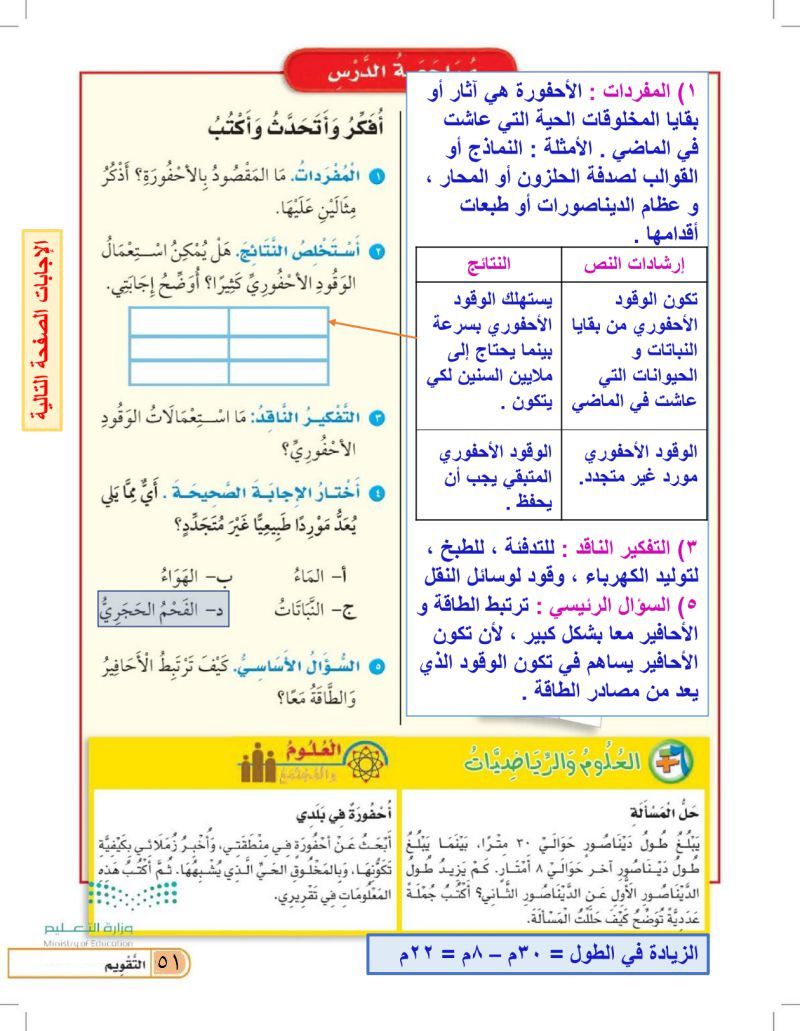 مُرَاجَعَةُ الدَّرْسِ
١) المفردات : الأحفورة هي آثار أو
بقايا المخلوقات الحية التي عاشت
في الماضي . الأمثلة : النماذج أو
القوالب لصدفة الحلزون أو المحار ،
و عظام الديناصورات أو طبعات
أقدامها .
إرشادات النص النتائج
تكون الوقود
الأحفوري من بقايا
النباتات و
الحيوانات التي
عاشت في الماضي
يستهلك الوقود
الأحفوري بسرعة
بينما يحتاج إلى
ملايين السنين لكي
يتكون .
الوقود الأحفوري
مورد غير متجدد.
الوقود الأحفوري
المتبقي يجب أن
يحفظ .
٣) التفكير الناقد : للتدفئة ، للطبخ ،
لتوليد الكهرباء ، وقود لوسائل النقل
٥) السؤال الرئيسي : ترتبط الطاقة و
الأحافير معا بشكل كبير ، لأن تكون
الأحافير يساهم في تكون الوقود الذي
يعد من مصادر الطاقة .
أُفَكِّرُ وَأَتَحَدَّثُ وَأَكْتُبُ
١ الْمُفْرَدَاتُ. مَا المَقْصُودُ بِالأُحْفُورَةِ؟ أَذْكُرُ
مِثَالَيْنِ عَلَيْهَا.
٢ أَسْتَخْلِصُ النَّتَائِجَ. هَلْ يُمْكِنُ اسْتِعْمَالُ
الوَقُودِ الأُحْفُورِيِّ كَثِيرًا؟ أُوَضِّحُ إِجَابَتِي.
٣ التَّفْكِيرُ النَّاقِدُ: مَا اسْتِعْمَالَاتُ الوَقُودِ
الأُحْفُورِيِّ؟
٤ أَخْتَارُ الإِجَابَةَ الصَّحِيحَةَ . أَيٌّ مِمَّا يَلِي
يُعَدُّ مَوْرِدًا طَبِيعِيًّا غَيْرَ مُتَجَدِّدٍ؟
أ– المَاءُ ب– الهَوَاءُ
ج– النَّبَاتَاتُ د– الفَحْمُ الحَجَرِيُّ
٥ السُّؤَالُ الأَسَاسِيُّ. كَيْفَ تَرْتَبِطُ الْأَحَافِيرُ
وَالطَّاقَةُ مَعًا؟
الإجابات الصفحة التالية
العُلُومُ وَالرِّيَاضِيَّاتُ
حَلُّ الْمَسْأَلَةِ
يَبْلُغُ طُولُ دَيْنَاصُورٍ حَوَالَيْ ٣٠ مِتْرًا، بَيْنَمَا يَبْلُغُ
طُولُ دَيْنَاصُورٍ آخر حَوَالَيْ ٨ أَمْتَارٍ. كَمْ يَزِيدُ طُولُ
الدَّيْنَاصُورِ الأَوَّلِ عَنِ الدَّيْنَاصُورِ الثَّانِي؟ أَكْتُبُ جُمْلَةً
عَدَدِيَّةً تُوَضِّحُ كَيْفَ حَلَلْتُ المَسْأَلَةَ.
الْعُلُومُ
وَالمُجْتَمَعُ
أُحْفُورَةٌ فِي بَلَدِي
أَبْحَثُ عَنْ أُحْفُورَةٍ فِي مِنْطَقَتِي، وَأُخْبِرُ زُمَلَائِي بِكَيْفِيَّةِ
تَكَوُّنِهَا، وَبِالمَخْلُوقِ الحَيِّ الَّذِي يُشْبِهُهَا. ثُمَّ أَكْتُبُ هَذِهِ
المَعْلُومَاتِ فِي تَقْرِيرِي.
الزيادة في الطول = ٣٠م – ٨م = ٢٢م
وزارة التعليم
Ministry of Education
التَّقْوِيم ٥١